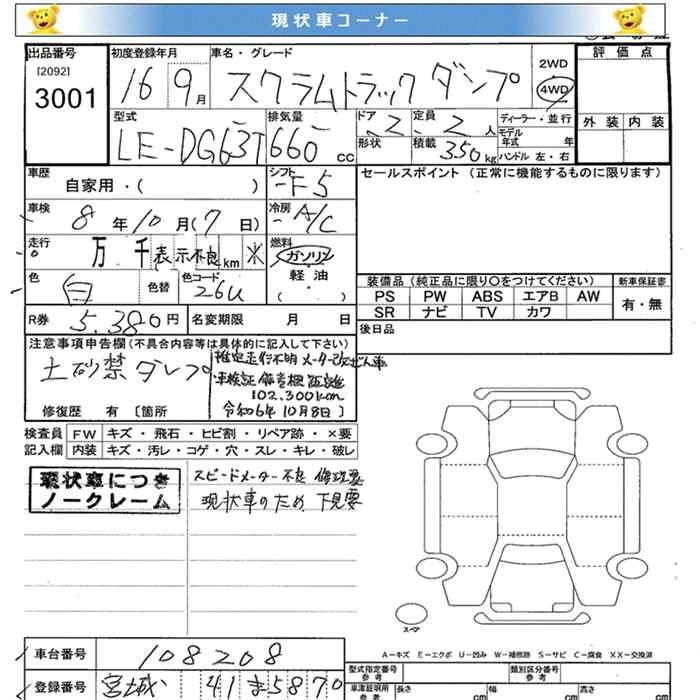 現状車コーナー
出品番号
[2092]
3001
初度登録年月
16 9月
車名・グレード
スクラムトラック ダンプ
2WD
4WD
評価点
外装 内装
型式
LE-DG63T
排気量
660 cc
ドア 2
形状
定員 2 人
積載 350 kg
ディーラー・並行
モデル年式 年
ハンドル 左・右
車歴
自家用・( )
シフト
F5
セールスポイント (正常に機能するものに限ります)
車検
8年10月(7日)
冷房
A/C
走行
万 千 表示不良 km ※
燃料
ガソリン
軽油
( ・ )
色
白
色替
色コード
26U
装備品 (純正品に限り○をつけてください)
新車保証書
PS PW ABS エアB AW
SR ナビ TV カワ
有・無
R券 5.380円
名変期限 月 日
後日品
注意事項申告欄(不具合内容等は具体的に記入して下さい)
土砂禁ダンプ
車検証備考欄 距離
102,300km
令和6年10月8日
修復歴 有 [箇所
検査員記入欄
FW キズ・飛石・ヒビ割・リペア跡・×要
内装 キズ・汚レ・コゲ・穴・スレ・キレ・破レ
現状車につき
ノークレーム
スピードメーター不良 修理要
現状車のため、下見要
スペア
A－キズ E－エクボ U－凹み W－補修跡 S－サビ C－腐食 XX－交換済
車台番号
108208
登録番号
宮城 41 ま5870
型式指定番号 参考
類別区分番号 参考
車庫証明用 参考
長さ cm
幅 cm
高さ cm